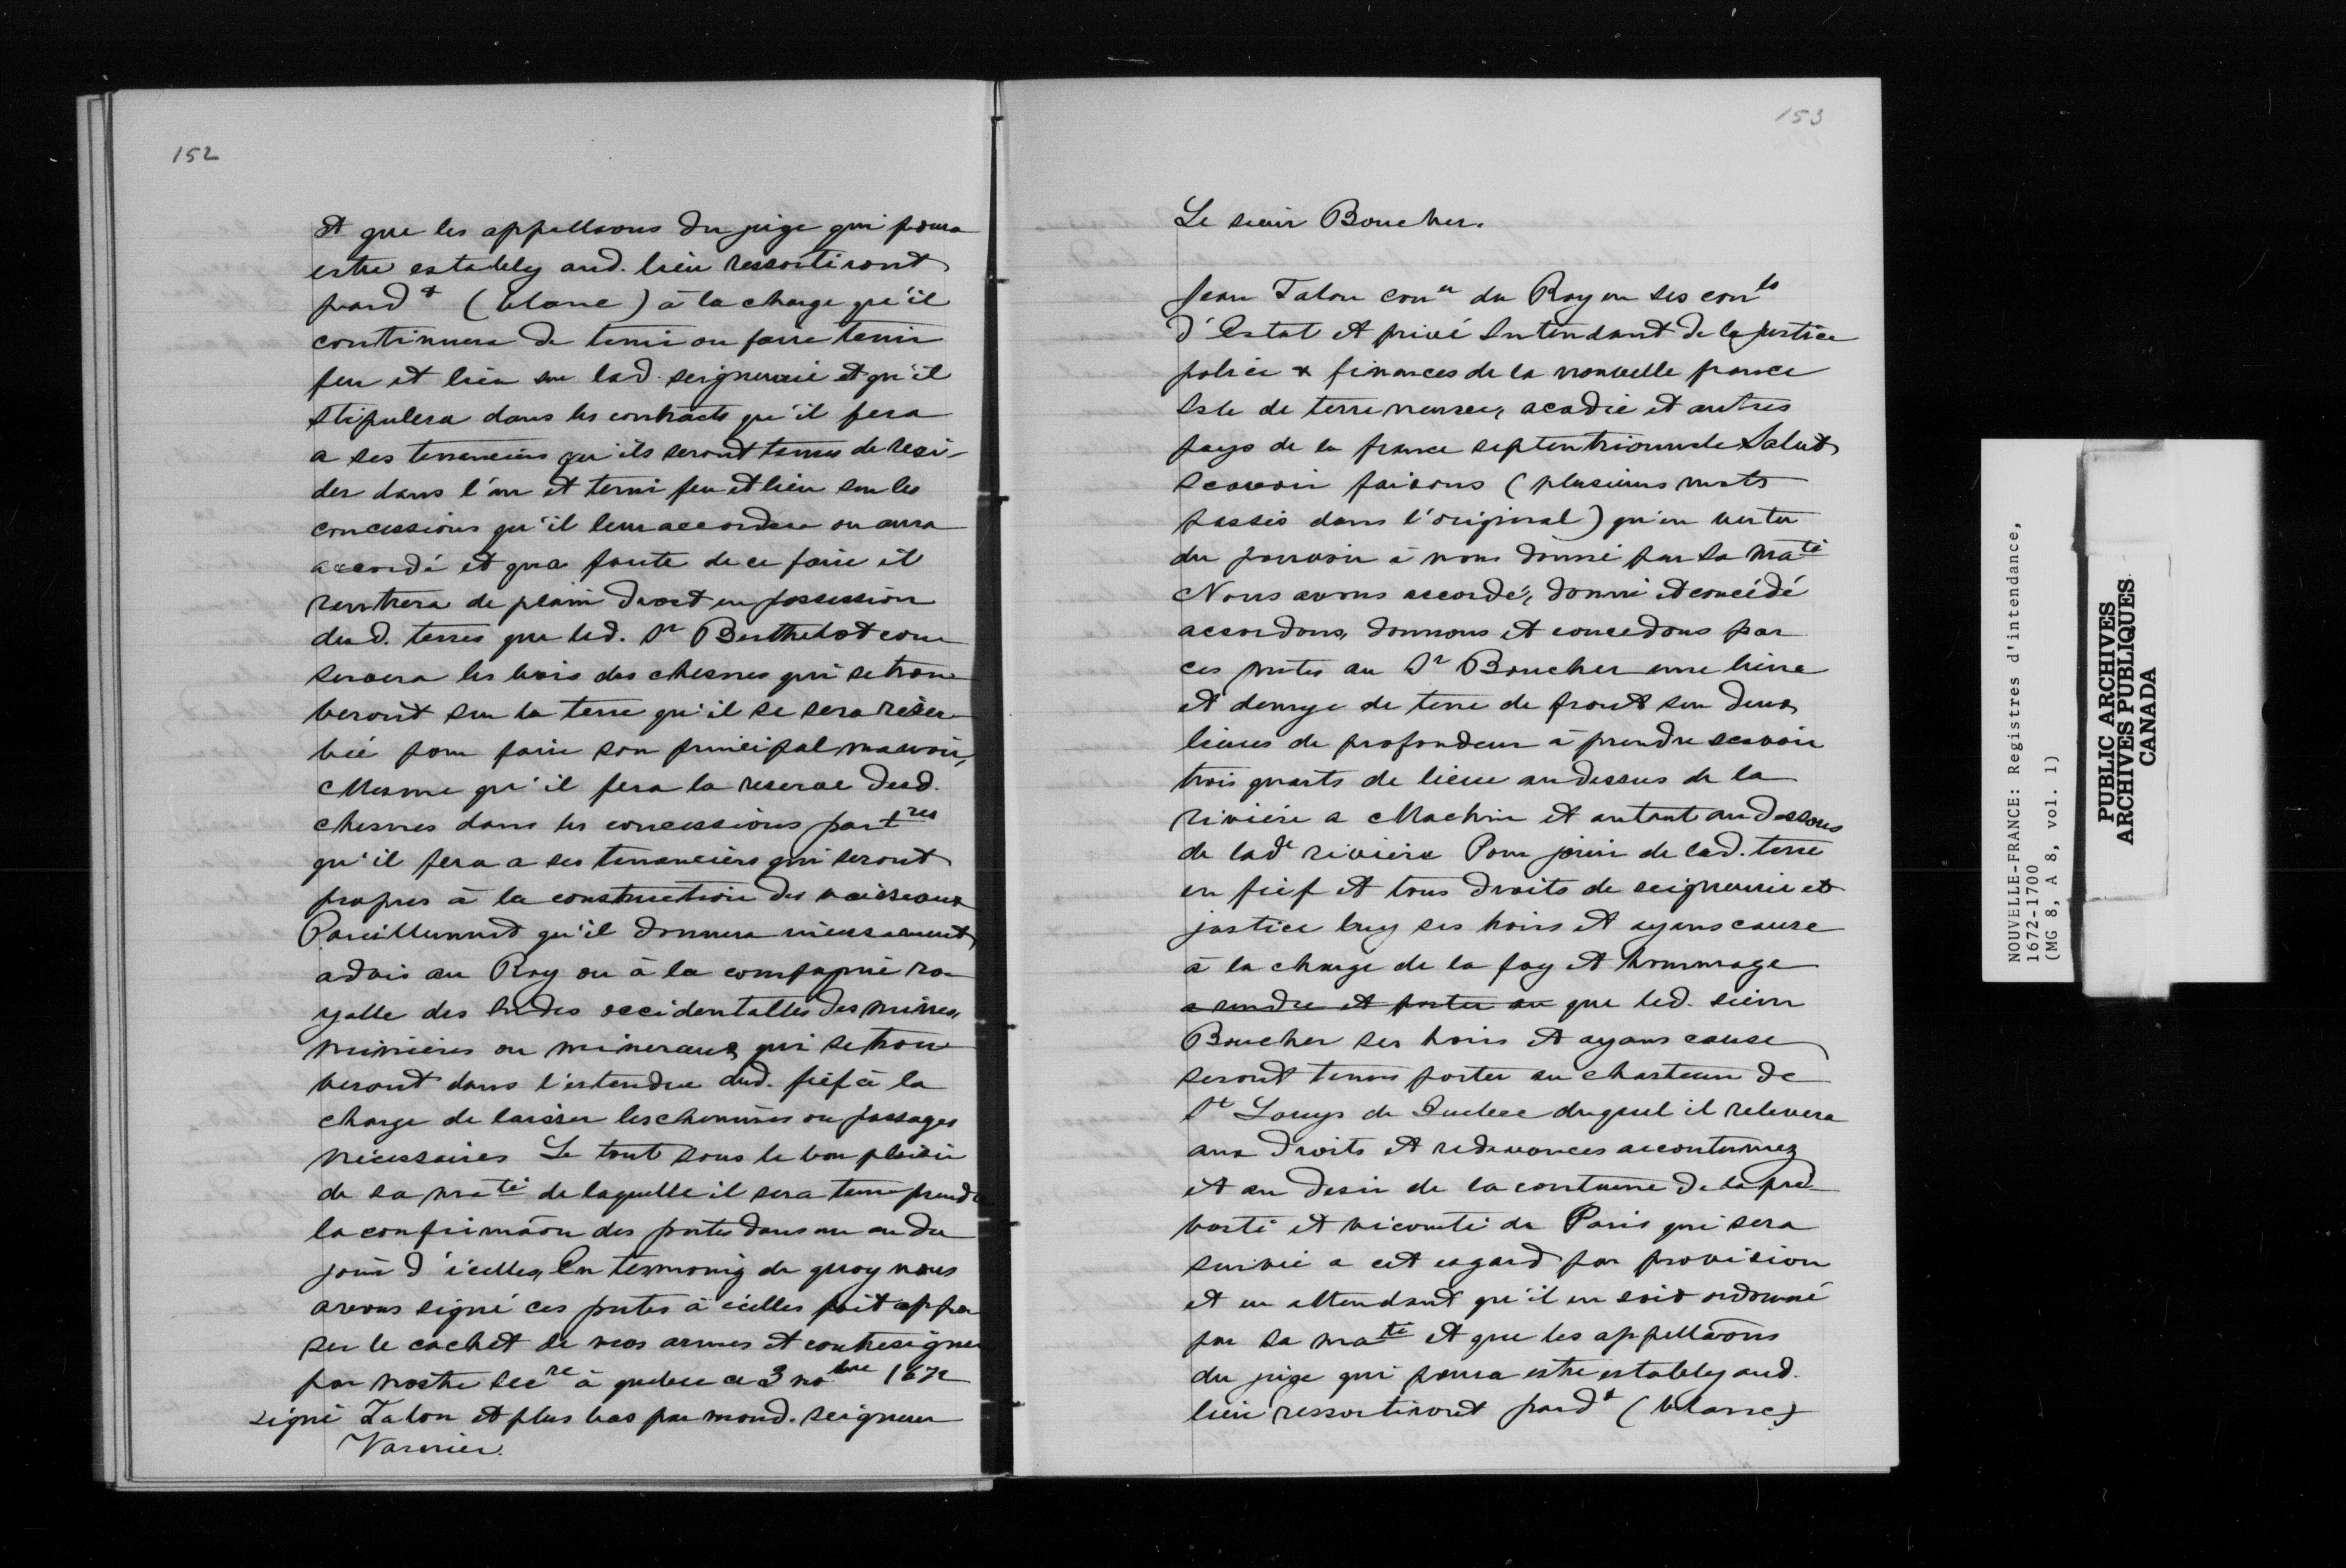 152
et que les appellaons du juge qui poura
estre estably aud. lieu ressortiront
pard^t (blanc) à la charge qu'il
continuera de tenir ou faire tenir
feu et lieu sur lad. seigneurie et qu'il
stipulera dans les contracts qu'il fera
a ses tenanciers qu'ils seront tenus de resi-
der dans l'an et tenir feu et lieu sur les
concessions qu'il leur accordera ou aura
accordé et qua faute de ce faire il
rentrera de plain droit en possession
desd. terres que led. S^r Berthelot con
servera les bois des chesnes qui se trou
veront sur la terre qu'il se sera réser
vée pour faire son principal manoir,
Mesme qu'il fera la reserve desd.
chesnes dans les concessions part^res
qu'il fera a ses tenanciers qui seront
propres à la construction des vaisseaux
Pareillement qu'il donnera incessament
advis au Roy ou à la compagnie ro-
yalle des Indes occidentalles des mines,
minières ou mineraux qui se trou
veront dans l'estendue dud. fief à la
charge de laisser les chemins ou passages
nécessaires Le tout sous le bon plaisir
de sa ma^té de laquelle il sera tenu prendre
la confirmaon des pntes dans un an du
jour d'icelles, En tesmoing de quoy nous
avons signé ces pntes à icelles fait appo
ser le cachet de nos armes et contresigner
par nostre sec^re à quebec ce 3 no^bre 1672
signé Talon et plus bas par mond. seigneur
Varnier.
153
Le sieur Boucher.
Jean Talon con^er du Roy en ses con^ls
d'Estat et privé Intendant de la justice
police & finances de la nouvelle france
Isle de terre neusve, acadie et autres
pays de la france septentrionnale Salut
scavoir faisons (plusieurs mots
passés dans l'original) qu'en vertu
du pouvoir à nous donné par Sa Ma^té
Nous avons accordé, donné et concédé
accordons, donnons et concedons par
ces pntes au S^r Boucher une lieue
et demye de terre de front sur deux
lieues de profondeur à prendre scavoir
trois quarts de lieue au dessus de la
rivière a Machin et autant au dessous
de lad^e rivière Pour jouir de lad. terre
en fief et tous droits de seigneurie et
justice luy ses hoirs et ayans cause
à la charge de la foy et hommage
a rendre et porter au que led. sieur
Boucher ses hoirs et ayans cause
seront tenus porter au chasteau de
S^t Louys de Quebec duquel il relevera
aux droits et redevances accoutumez
et au desir de la coutume de la pré
vosté et vicomté de Paris qui sera
suivie a cet esgard par provision
et en attendant qu'il en soit ordonné
par sa ma^té et que les appellaons
du juge qui poura estre estably aud.
lieu ressortiront pard^t (blanc)
NOUVELLE-FRANCE: Registres d'intendance,
1672-1700
(MG 8, A 8, vol. 1)
PUBLIC ARCHIVES
ARCHIVES PUBLIQUES
CANADA